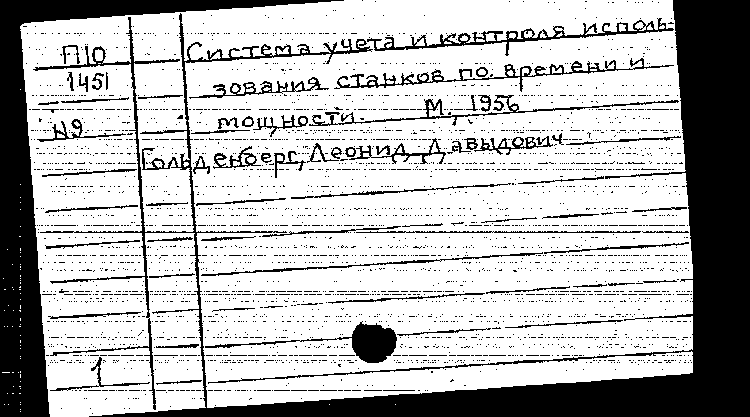 П10 Система учета и контроля исполь-
1451 зования станков по времени и
N9 мощности. М., 1956
Гольденберг, Леонид Давыдович
1